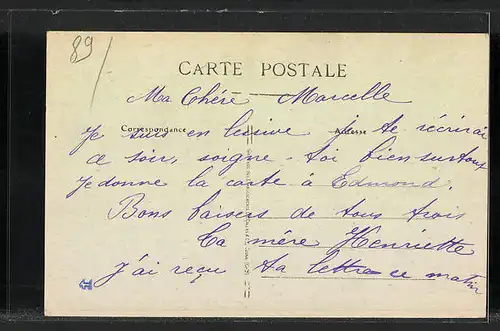 89
CARTE POSTALE
Ma Chère Marcelle
Correspondance
Adresse
Je suis en lessive je te récrirai
ce soir, soigne-toi bien surtout
Je donne la carte à Edmond.
Bons baisers de tous trois
Ta mère Henriette
J'ai reçu ta lettre ce matin